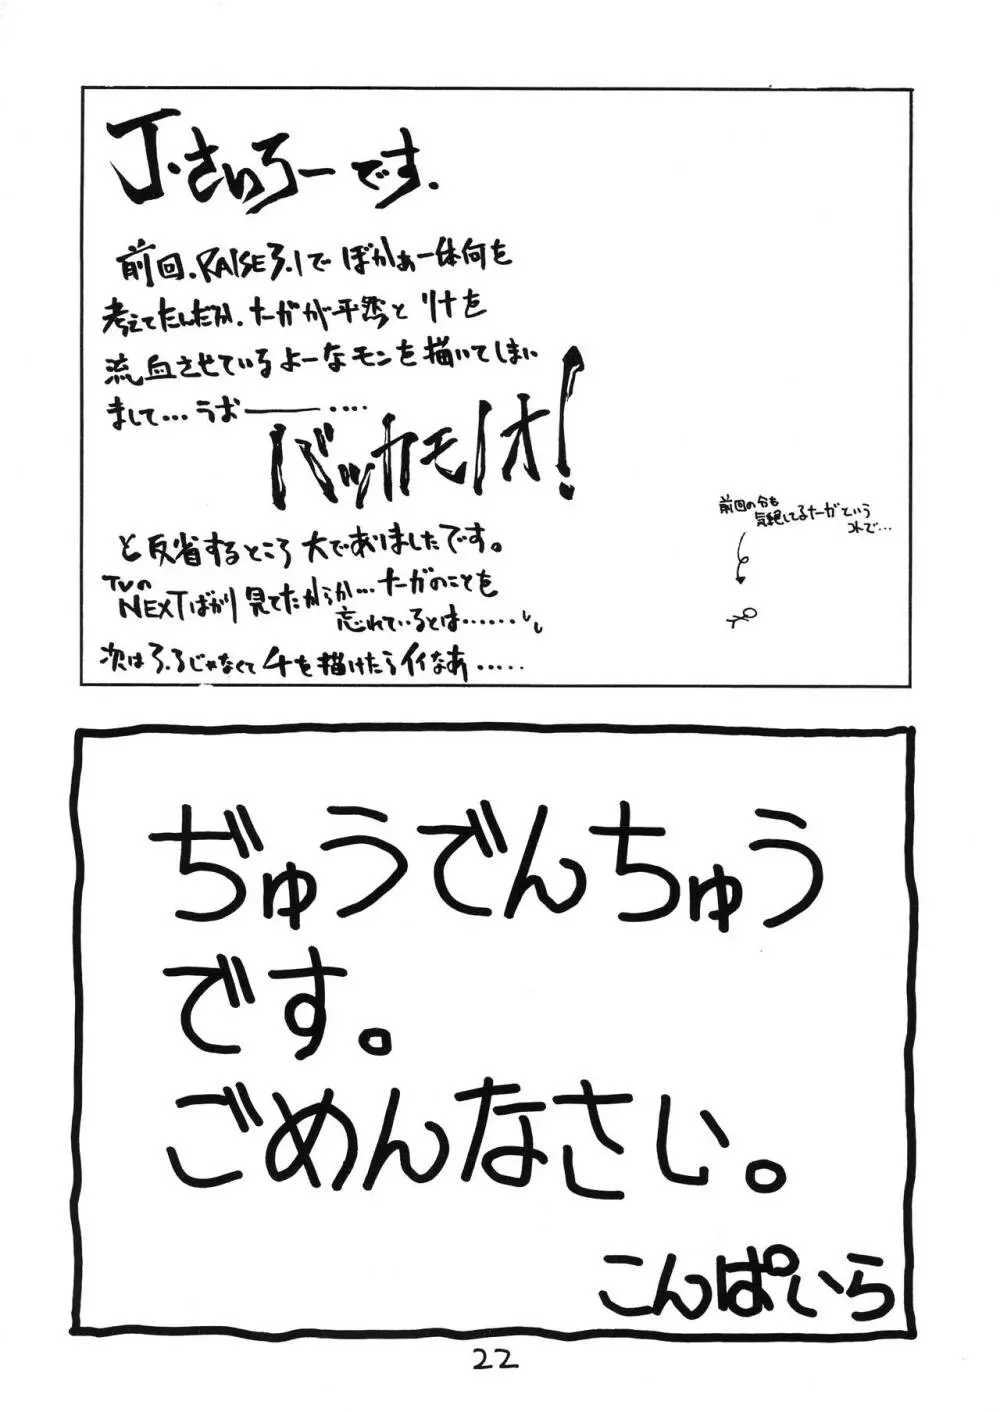 J・さいろーです.
前回.RAISE3.1で ぼかぁ一体何を
考えてたんだか.たーがが平然と リナを
流血させているよーなモンを描いてしまい
まして…うおーーー‥‥
バッカモノオ!
と反省するところ 大でありましたです。
TVの
NEXTばかり見てたからか…たーがのことを
忘れているとは……
次は3.3じゃなくて4を描けたらイイなあ……
前回の分も
気絶してるたーがという
コトで…
ぢゅうでんちゅう
です。
ごめんなさい。
こんぱいら
22